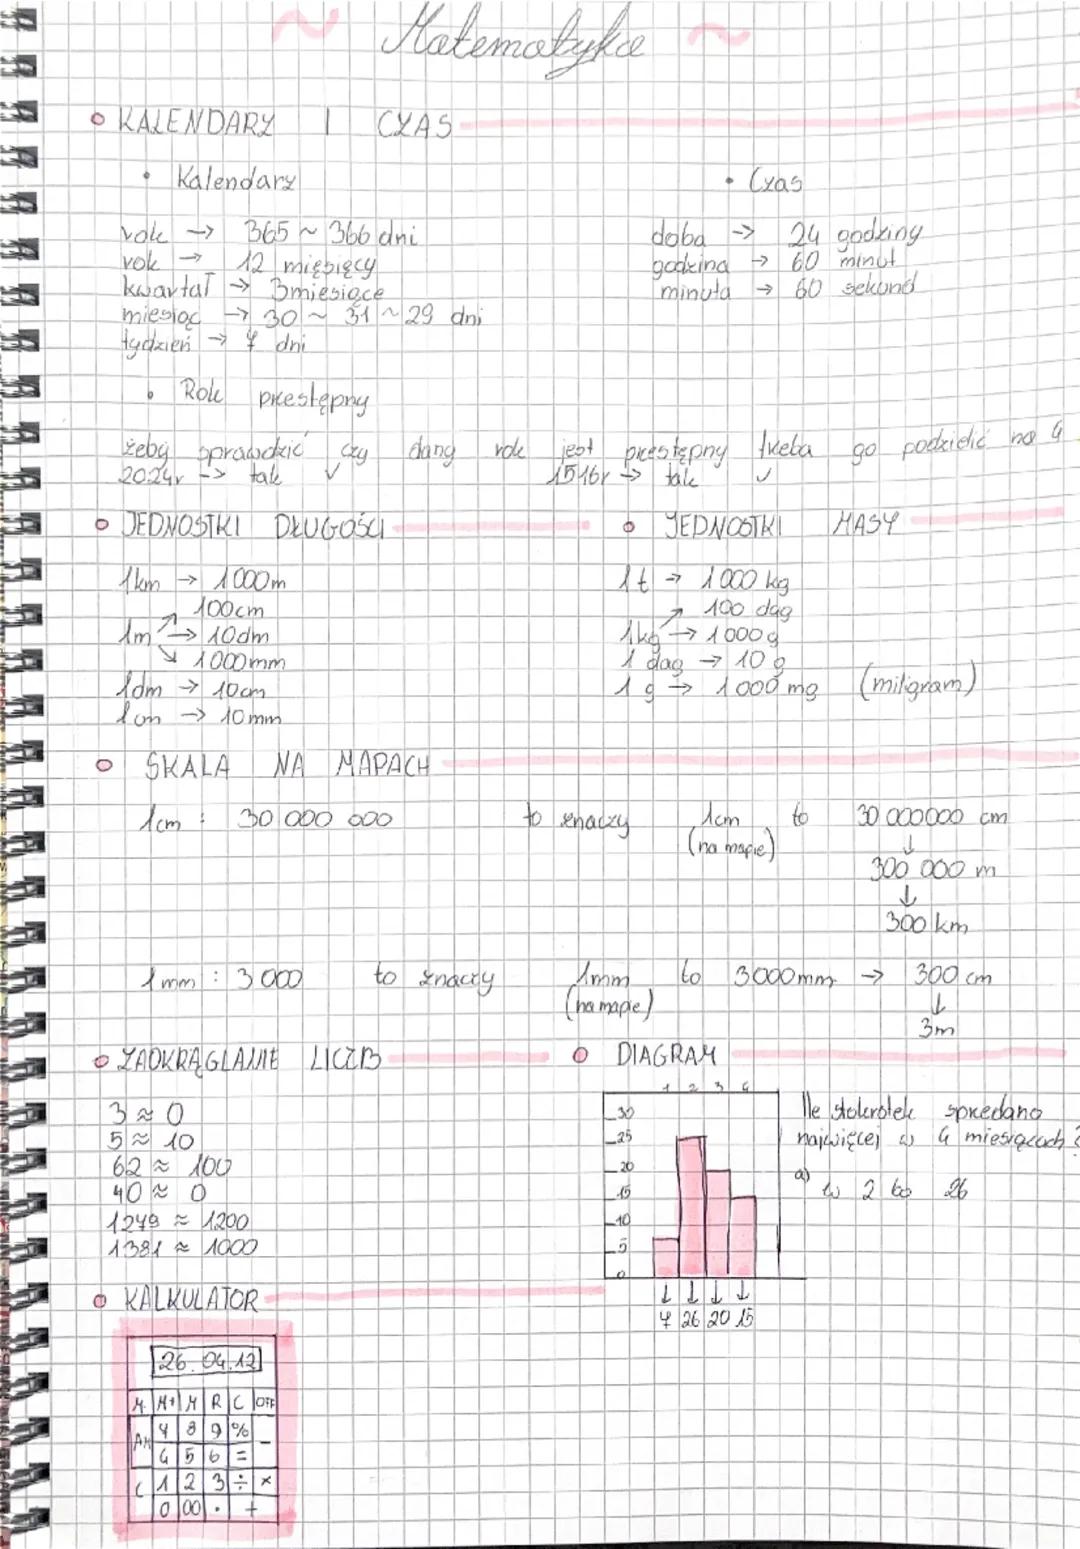 Matematyka
KALENDARZ I CZAS
Kalendarz
rok → 365 ~ 366 dni
rok → 12 miesięcy
kwartał → 3miesiące
miesiąc → 30 ~ 31 ~ 29 dni
tydzień → 7 dni
Czas
doba → 24 godziny
godzina → 60 minut
minuta → 60 sekund
Rok przestępny
żeby sprawdzić czy dany rok jest przestępny trzeba go podzielić na 4
2024r → tak ✓ 1516r → tak ✓
JEDNOSTKI DŁUGOŚCI
1km → 1000m
100cm
1m → 10dm
1000mm
1dm → 10cm
1cm → 10mm
JEDNOSTKI MASY
1t → 1000 kg
100 dag
1kg → 1000g
1 dag → 10 g
1 g → 1000 mg (miligram)
SKALA NA MAPACH
1cm : 30 000 000 to znaczy 1cm to 30 000000 cm
(na mapie)
↓
300 000 m
↓
300 km
1mm : 3 000 to znaczy 1mm to 3000mm → 300 cm
(na mapie)
↓
3m
ZAOKRĄGLANIE LICZB
3 ≈ 0
5 ≈ 10
62 ≈ 100
40 ≈ 0
1249 ≈ 1200
1381 ≈ 1000
DIAGRAM
1 2 3 4
30
25
20
15
10
5
0
↓ ↓ ↓ ↓
7 26 20 15
Ile stokrotek sprzedano
najwięcej w 4 miesiącach?
a) w 2 bo 26
KALKULATOR
26.04.12
M- M+ M R C OFF
7 8 9 % -
4 5 6 =
C 1 2 3 ÷ ×
0 00 . +